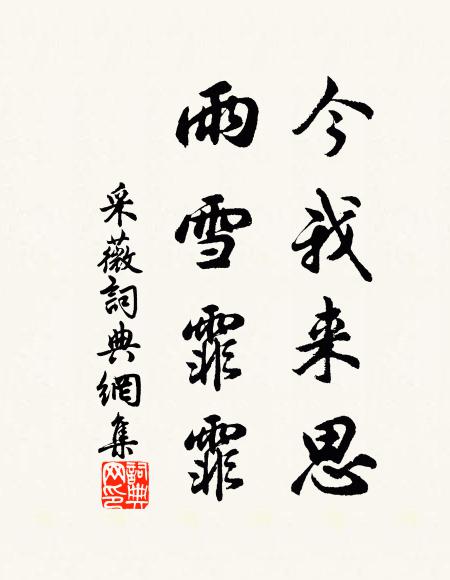 今我来思
雨雪霏霏
采薇詞典網集
詞典网印